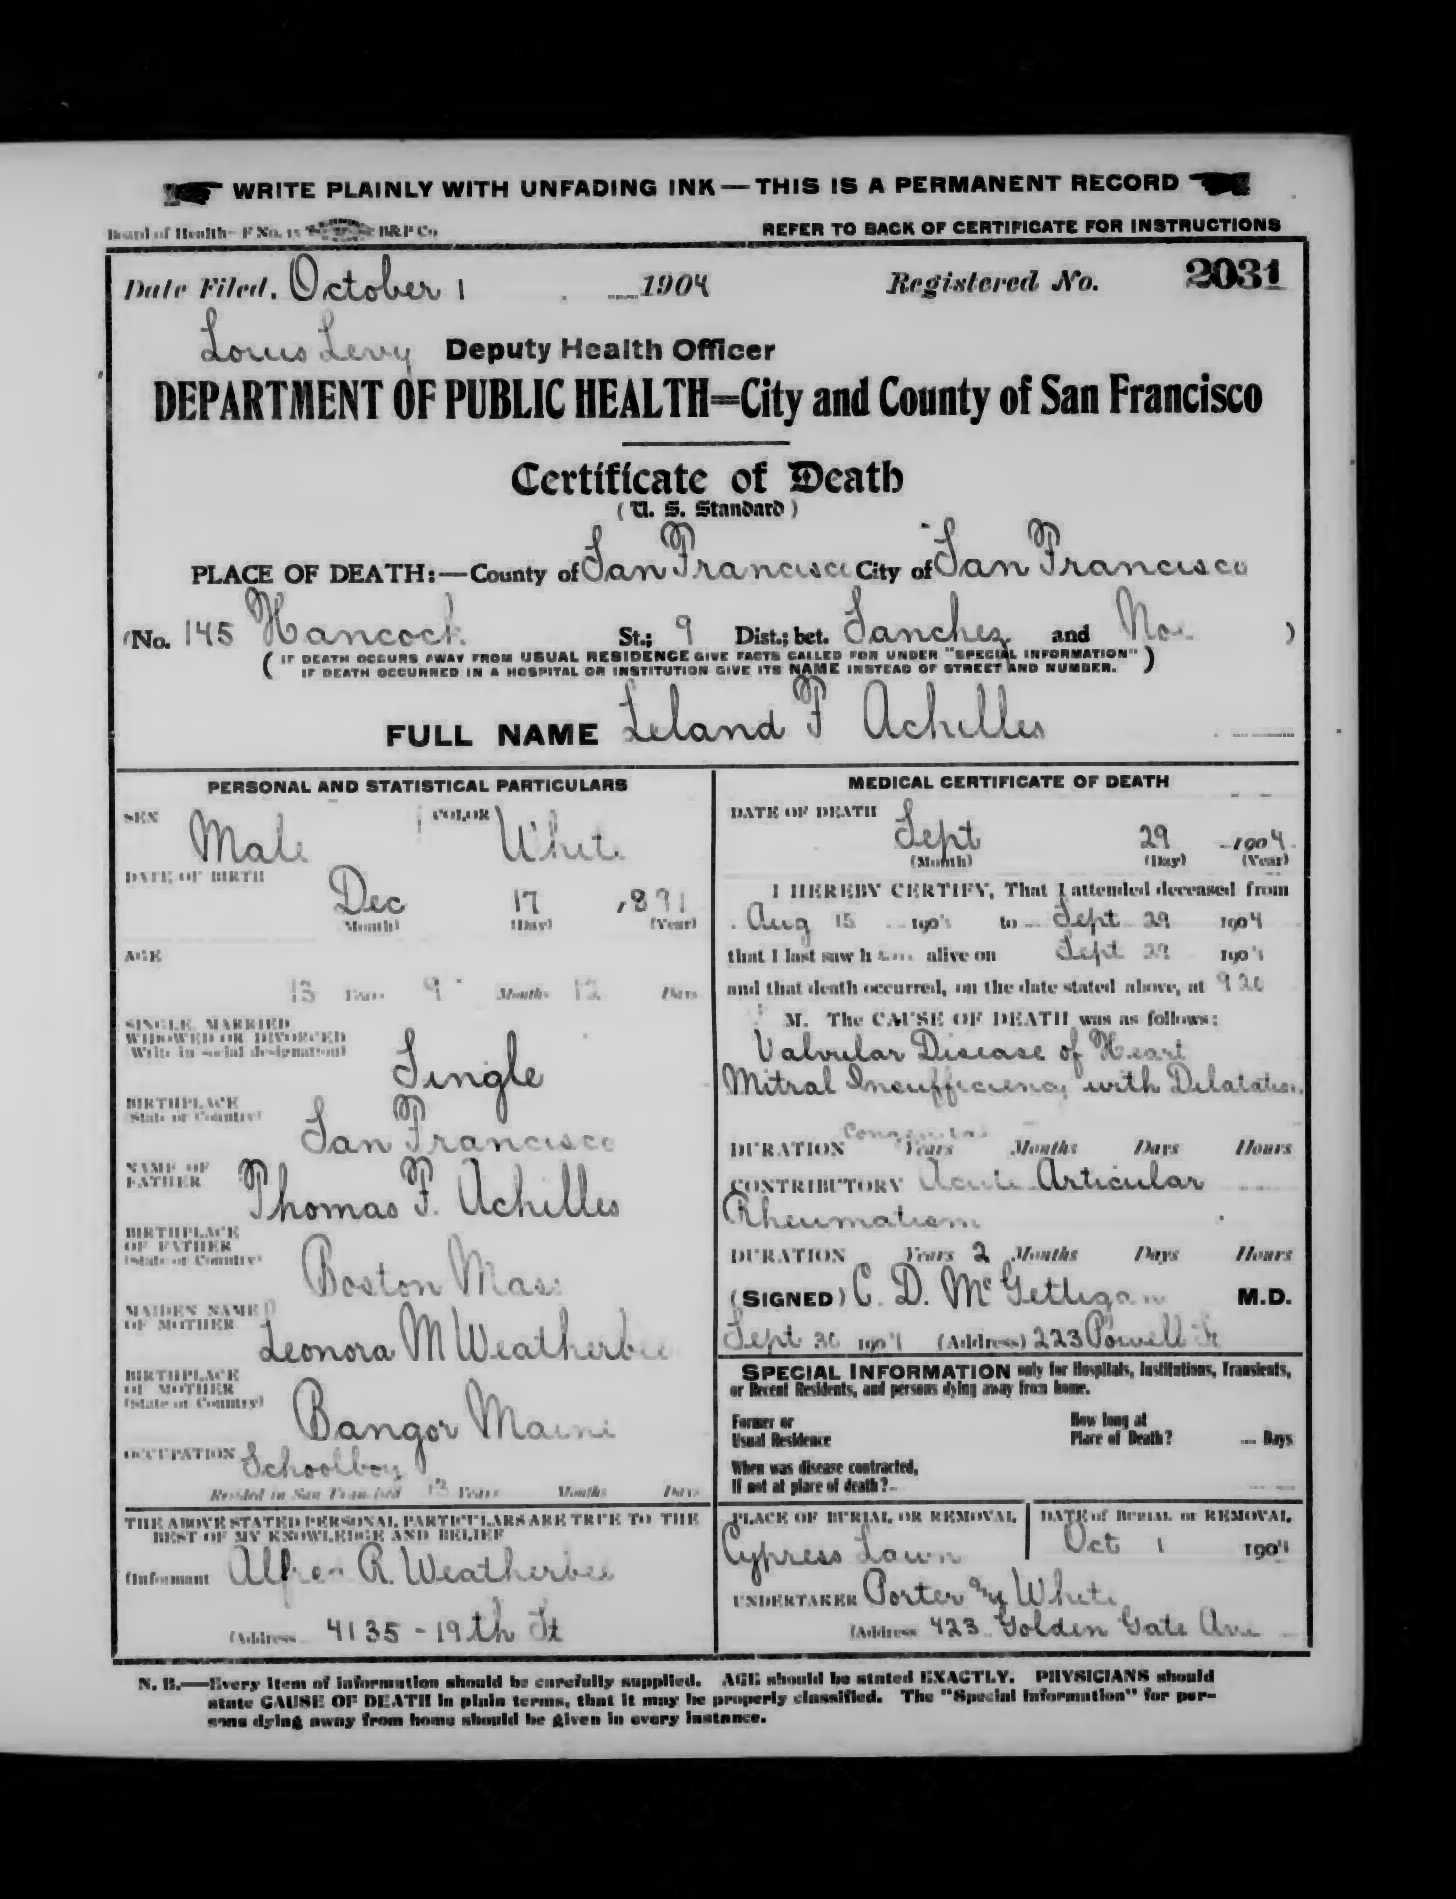 WRITE PLAINLY WITH UNFADING INK — THIS IS A PERMANENT RECORD
Board of Health—F No. 15 B&P Co
REFER TO BACK OF CERTIFICATE FOR INSTRUCTIONS
Date Filed, October 1 1904 Registered No. 2031
Louis Levy Deputy Health Officer
DEPARTMENT OF PUBLIC HEALTH=City and County of San Francisco
Certificate of Death
(U. S. Standard)
PLACE OF DEATH:—County of San Francisco City of San Francisco
(No. 145 Hancock St.; 9 Dist.; bet. Sanchez and Noe )
( IF DEATH OCCURS AWAY FROM USUAL RESIDENCE GIVE FACTS CALLED FOR UNDER "SPECIAL INFORMATION"
IF DEATH OCCURRED IN A HOSPITAL OR INSTITUTION GIVE ITS NAME INSTEAD OF STREET AND NUMBER. )
FULL NAME Leland F Achilles
PERSONAL AND STATISTICAL PARTICULARS
SEX Male COLOR White
DATE OF BIRTH Dec 17 1891
(Month) (Day) (Year)
AGE
12 Years 9 Months 12 Days
SINGLE, MARRIED
WIDOWED OR DIVORCED
(Write in social designation)
Single
BIRTHPLACE
(State or Country)
San Francisco
NAME OF
FATHER
Thomas F. Achilles
BIRTHPLACE
OF FATHER
(State or Country)
Boston Mass
MAIDEN NAME
OF MOTHER
Leonora M Weatherbee
BIRTHPLACE
OF MOTHER
(State or Country)
Bangor Maine
OCCUPATION Schoolboy
Resided in San Francisco 13 Years Months Days
THE ABOVE STATED PERSONAL PARTICULARS ARE TRUE TO THE
BEST OF MY KNOWLEDGE AND BELIEF
(Informant Alfred R. Weatherbee
(Address 4135 - 19th St
MEDICAL CERTIFICATE OF DEATH
DATE OF DEATH
Sept 29 1904
(Month) (Day) (Year)
I HEREBY CERTIFY, That I attended deceased from
Aug 15 1904 to Sept 29 1904
that I last saw h im alive on Sept 29 1904
and that death occurred, on the date stated above, at 9 20
M. The CAUSE OF DEATH was as follows:
Valvular Disease of Heart
Mitral Insufficiency with Dilatation
Congenital
DURATION Years Months Days Hours
CONTRIBUTORY Acute Articular
Rheumatism
DURATION Years 2 Months Days Hours
(SIGNED) C. D. McGettigan M.D.
Sept 30 1904 (Address) 223 Powell St
SPECIAL INFORMATION only for Hospitals, Institutions, Transients,
or Recent Residents, and persons dying away from home.
Former or
Usual Residence
How long at
Place of Death? Days
When was disease contracted,
If not at place of death?
PLACE OF BURIAL OR REMOVAL
Cypress Lawn
DATE of BURIAL or REMOVAL
Oct 1 1904
UNDERTAKER Porter & White
(Address 423 Golden Gate Ave
N. B.—Every item of information should be carefully supplied. AGE should be stated EXACTLY. PHYSICIANS should
state CAUSE OF DEATH in plain terms, that it may be properly classified. The "Special Information" for per-
sons dying away from home should be given in every instance.